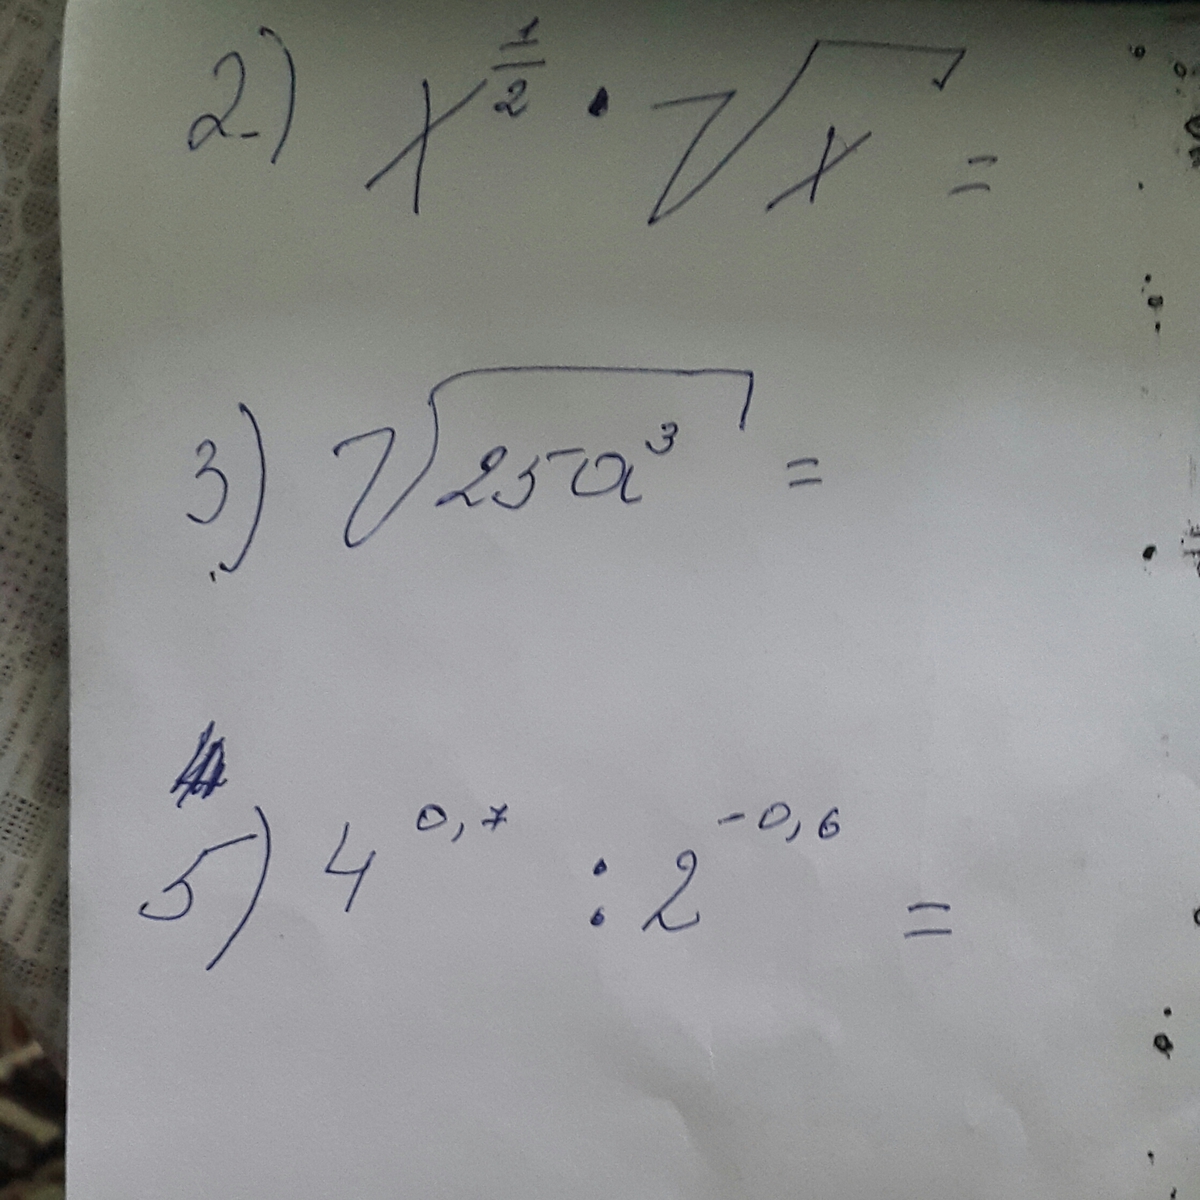 2) x^{\frac{1}{2}} · √x =
3) √25a³ =
5) 4^{0,7} : 2^{-0,6} =